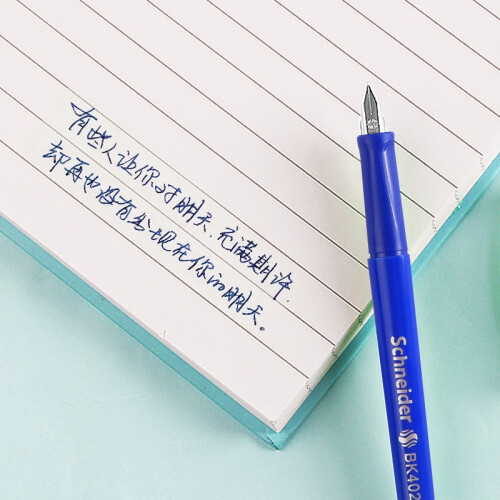 有些人让你对明天.充满期许.
却再也没有出现在你的明天。
Schneider
BK402